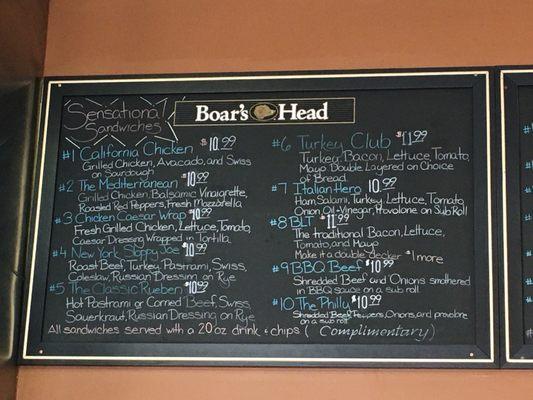 Sensational
Sandwiches
Boar's Head
#1 California Chicken $10.99
Grilled Chicken, Avocado, and Swiss
on Sourdough
#2 The Mediterranean $10.99
Grilled Chicken, Balsamic Vinaigrette,
Roasted Red Peppers, Fresh Mozzarella
#3 Chicken Caesar Wrap $10.99
Fresh Grilled Chicken, Lettuce, Tomato,
Caesar Dressing Wrapped in Tortilla
#4 New York Sloppy Joe $10.99
Roast Beef, Turkey, Pastrami, Swiss,
Coleslaw, Russian Dressing on Rye
#5 The Classic Rueben $10.99
Hot Pastrami or Corned Beef, Swiss,
Sauerkraut, Russian Dressing on Rye
#6 Turkey Club $11.99
Turkey, Bacon, Lettuce, Tomato,
Mayo Double Layered on Choice
of Bread
#7 Italian Hero 10.99
Ham, Salami, Turkey, Lettuce, Tomato,
Onion, Oil + Vinegar, Provolone on Sub Roll
#8 BLT $11.99
The traditional Bacon, Lettuce,
Tomato, and Mayo
Make it a double decker $1 more
#9 BBQ Beef $10.99
Shredded Beef and Onions smothered
in BBQ sauce on a sub roll
#10 The Philly $10.99
Shredded Beef, Peppers, Onions, and provolone
on a sub roll
All sandwiches served with a 20oz drink & chips (Complimentary)